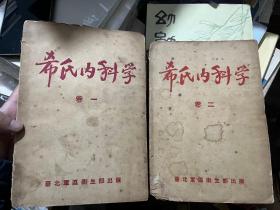 希氏内科学
卷一
華北軍區衛生部出版
希氏内科学
卷二
華北軍區衛生部出版
幼